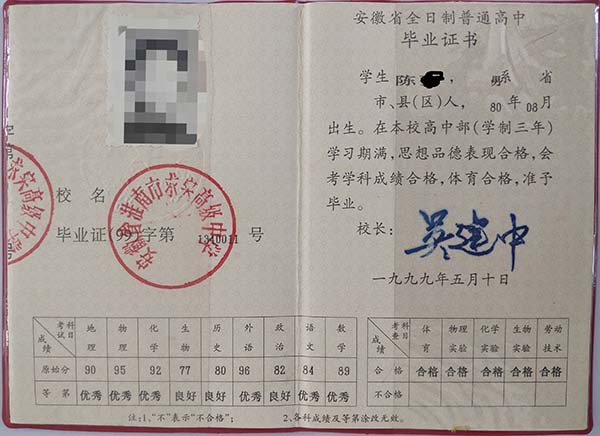 安徽省淮南市蔡家岗高级中学
校 名
毕业证(99)字第 1340011 号
安徽省全日制普通高中
毕业证书
学生 陈 ， 男系 省
市、县(区)人， 80 年 08月
出生。在本校高中部(学制三年)
学习期满，思想品德表现合格，会
考学科成绩合格，体育合格，准予
毕业。
校长： 吴建中
一九九九年五月十日
考试科目 成绩 地理 物理 化学 生物 历史 外语 政治 语文 数学
原始分 90 95 92 77 80 96 82 84 89
等第 优秀 优秀 优秀 良好 良好 优秀 良好 优秀 优秀
考查科目 成绩 体育 物理实验 化学实验 生物实验 劳动技术
合格 合格 合格 合格 合格 合格
不合格
注:1、"不"表示"不合格"； 2、各科成绩及等第涂改无效。